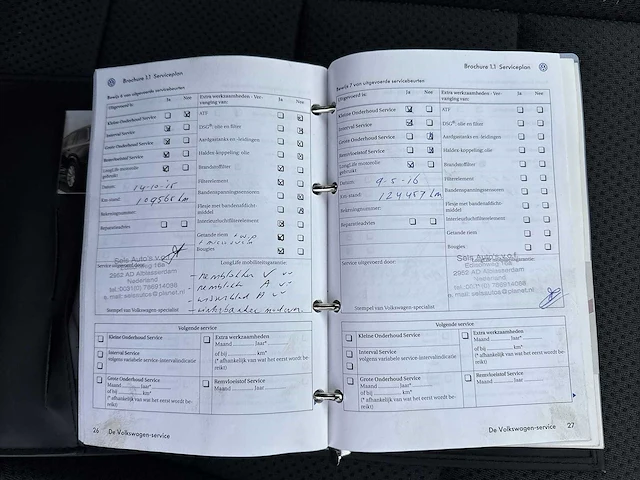 Brochure 1.1 Serviceplan
Bewijs 6 van uitgevoerde servicebeurten
Uitgevoerd is: Ja Nee
Extra werkzaamheden - Ver-
vanging van: Ja Nee
Kleine Onderhoud Service
ATF
Interval Service
DSG®-olie en filter
Grote Onderhoud Service
Aardgastanks en -leidingen
Remvloeistof Service
Haldex-koppeling: olie
LongLife motorolie
gebruikt
Brandstoffilter
Datum: 14-10-15
Filterelement
Km-stand: 109565 km
Bandenspanningsmoteren
Bekrachtiging:
Flesje met bandenafdicht-
middel
Reparatieadvies
Interieurluchtfilterelement
Getande riem + w.p
Bougies
Service uitgevoerd door:
Sels Auto's v.o.f.
Edisonweg 16a
2952 AD Alblasserdam
Nederland
tel.:0031(0) 786914088
e.mail: selsautos@planet.nl
LongLife mobiliteitsgarantie:
- remblokken V
- remblok A
Stempel van Volkswagen-specialist
Volgende service
Kleine Onderhoud Service
Interval Service
volgens variabele service-intervalindicatie
Grote Onderhoud Service
Maand jaar*
of bij km*
(* afhankelijk van wat het eerst wordt be-
reikt)
Extra werkzaamheden
Maand jaar*
of bij km*
(* afhankelijk van wat het eerst wordt be-
reikt)
Remvloeistof Service
Maand jaar
26 De Volkswagen-service
Brochure 1.1 Serviceplan
Bewijs 7 van uitgevoerde servicebeurten
Uitgevoerd is: Ja Nee
Extra werkzaamheden - Ver-
vanging van: Ja Nee
Kleine Onderhoud Service
ATF
Interval Service
DSG®-olie en filter
Grote Onderhoud Service
Aardgastanks en -leidingen
Remvloeistof Service
Haldex-koppeling: olie
LongLife motorolie
gebruikt
Brandstoffilter
Datum: 9-5-16
Filterelement
Km-stand: 124457 km
Flesje met bandenafdicht-
middel
Reparatieadvies
Interieurluchtfilterelement
Getande riem
Bougies
Service uitgevoerd door:
Sels Auto's v.o.f.
Edisonweg 16a
2952 AD Alblasserdam
Nederland
tel.:0031(0) 786914088
e.mail: selsautos@planet.nl
Stempel van Volkswagen-specialist
Volgende service
Kleine Onderhoud Service
Interval Service
volgens variabele service-intervalindicatie
Grote Onderhoud Service
Maand jaar*
of bij km*
(* afhankelijk van wat het eerst wordt be-
reikt)
Extra werkzaamheden
Maand jaar*
of bij km*
(* afhankelijk van wat het eerst wordt be-
reikt)
Remvloeistof Service
Maand jaar
De Volkswagen-service 27